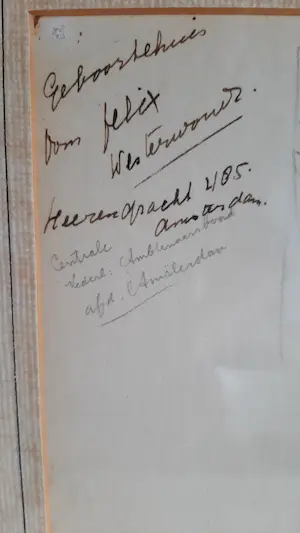 Geboortehuis
van Felix
Westerwoudt.
Heerengracht 485.
Amsterdam.
Centrale
Nederl: Ambtenaarsbond
afd. Amsterdam